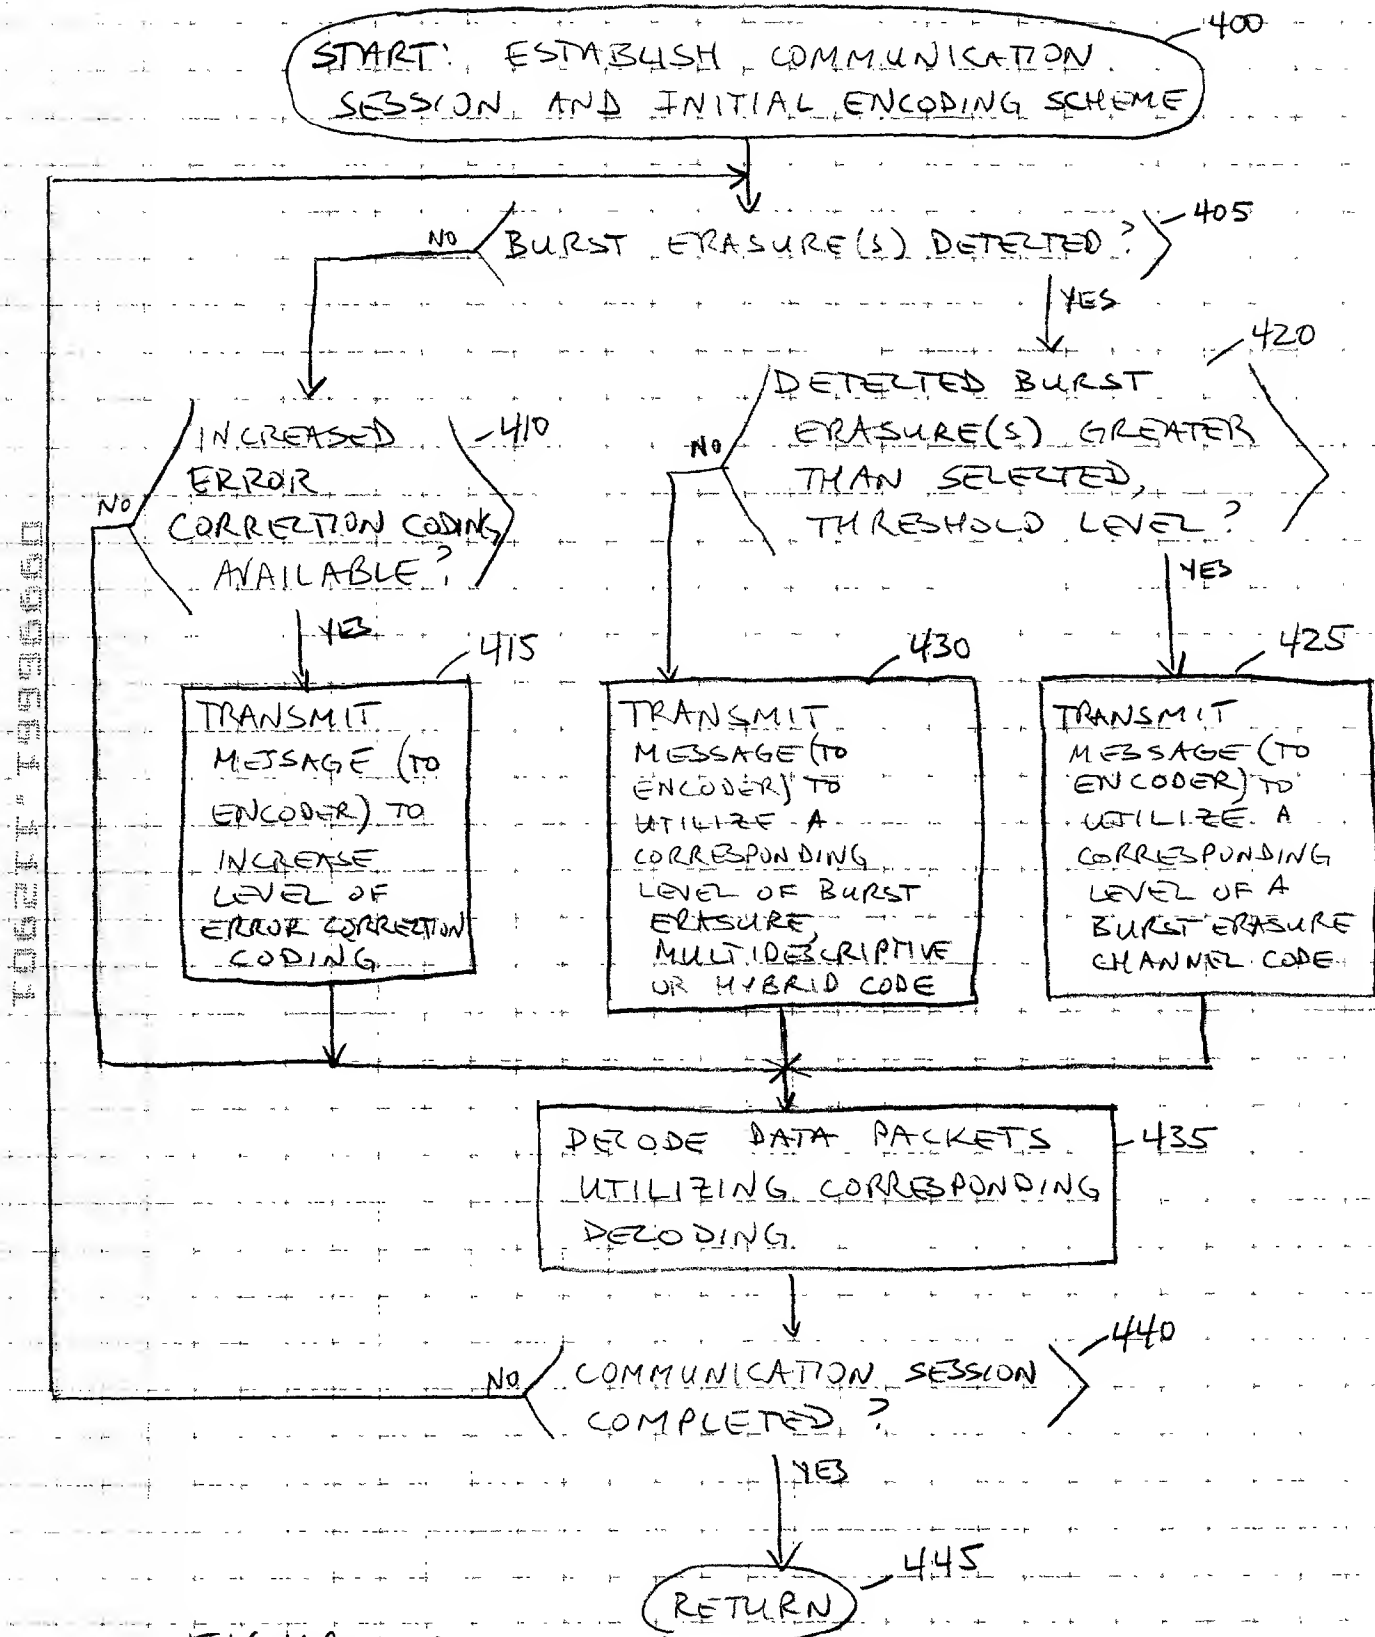 400
START: ESTABLISH COMMUNICATION
SESSION AND INITIAL ENCODING SCHEME
405
NO
BURST ERASURE(S) DETECTED?
YES
420
DETECTED BURST
ERASURE(S) GREATER
THAN SELECTED
THRESHOLD LEVEL?
NO
YES
410
INCREASED
ERROR
CORRECTION CODING
AVAILABLE?
NO
YES
415
430
425
TRANSMIT
MESSAGE (TO
ENCODER) TO
INCREASE
LEVEL OF
ERROR CORRECTION
CODING
TRANSMIT
MESSAGE (TO
ENCODER) TO
UTILIZE A
CORRESPONDING
LEVEL OF BURST
ERASURE,
MULTIDESCRIPTIVE
OR HYBRID CODE
TRANSMIT
MESSAGE (TO
ENCODER) TO
UTILIZE A
CORRESPONDING
LEVEL OF A
BURST ERASURE
CHANNEL CODE
DECODE DATA PACKETS
UTILIZING CORRESPONDING
DECODING
435
440
NO
COMMUNICATION SESSION
COMPLETED?
YES
445
RETURN